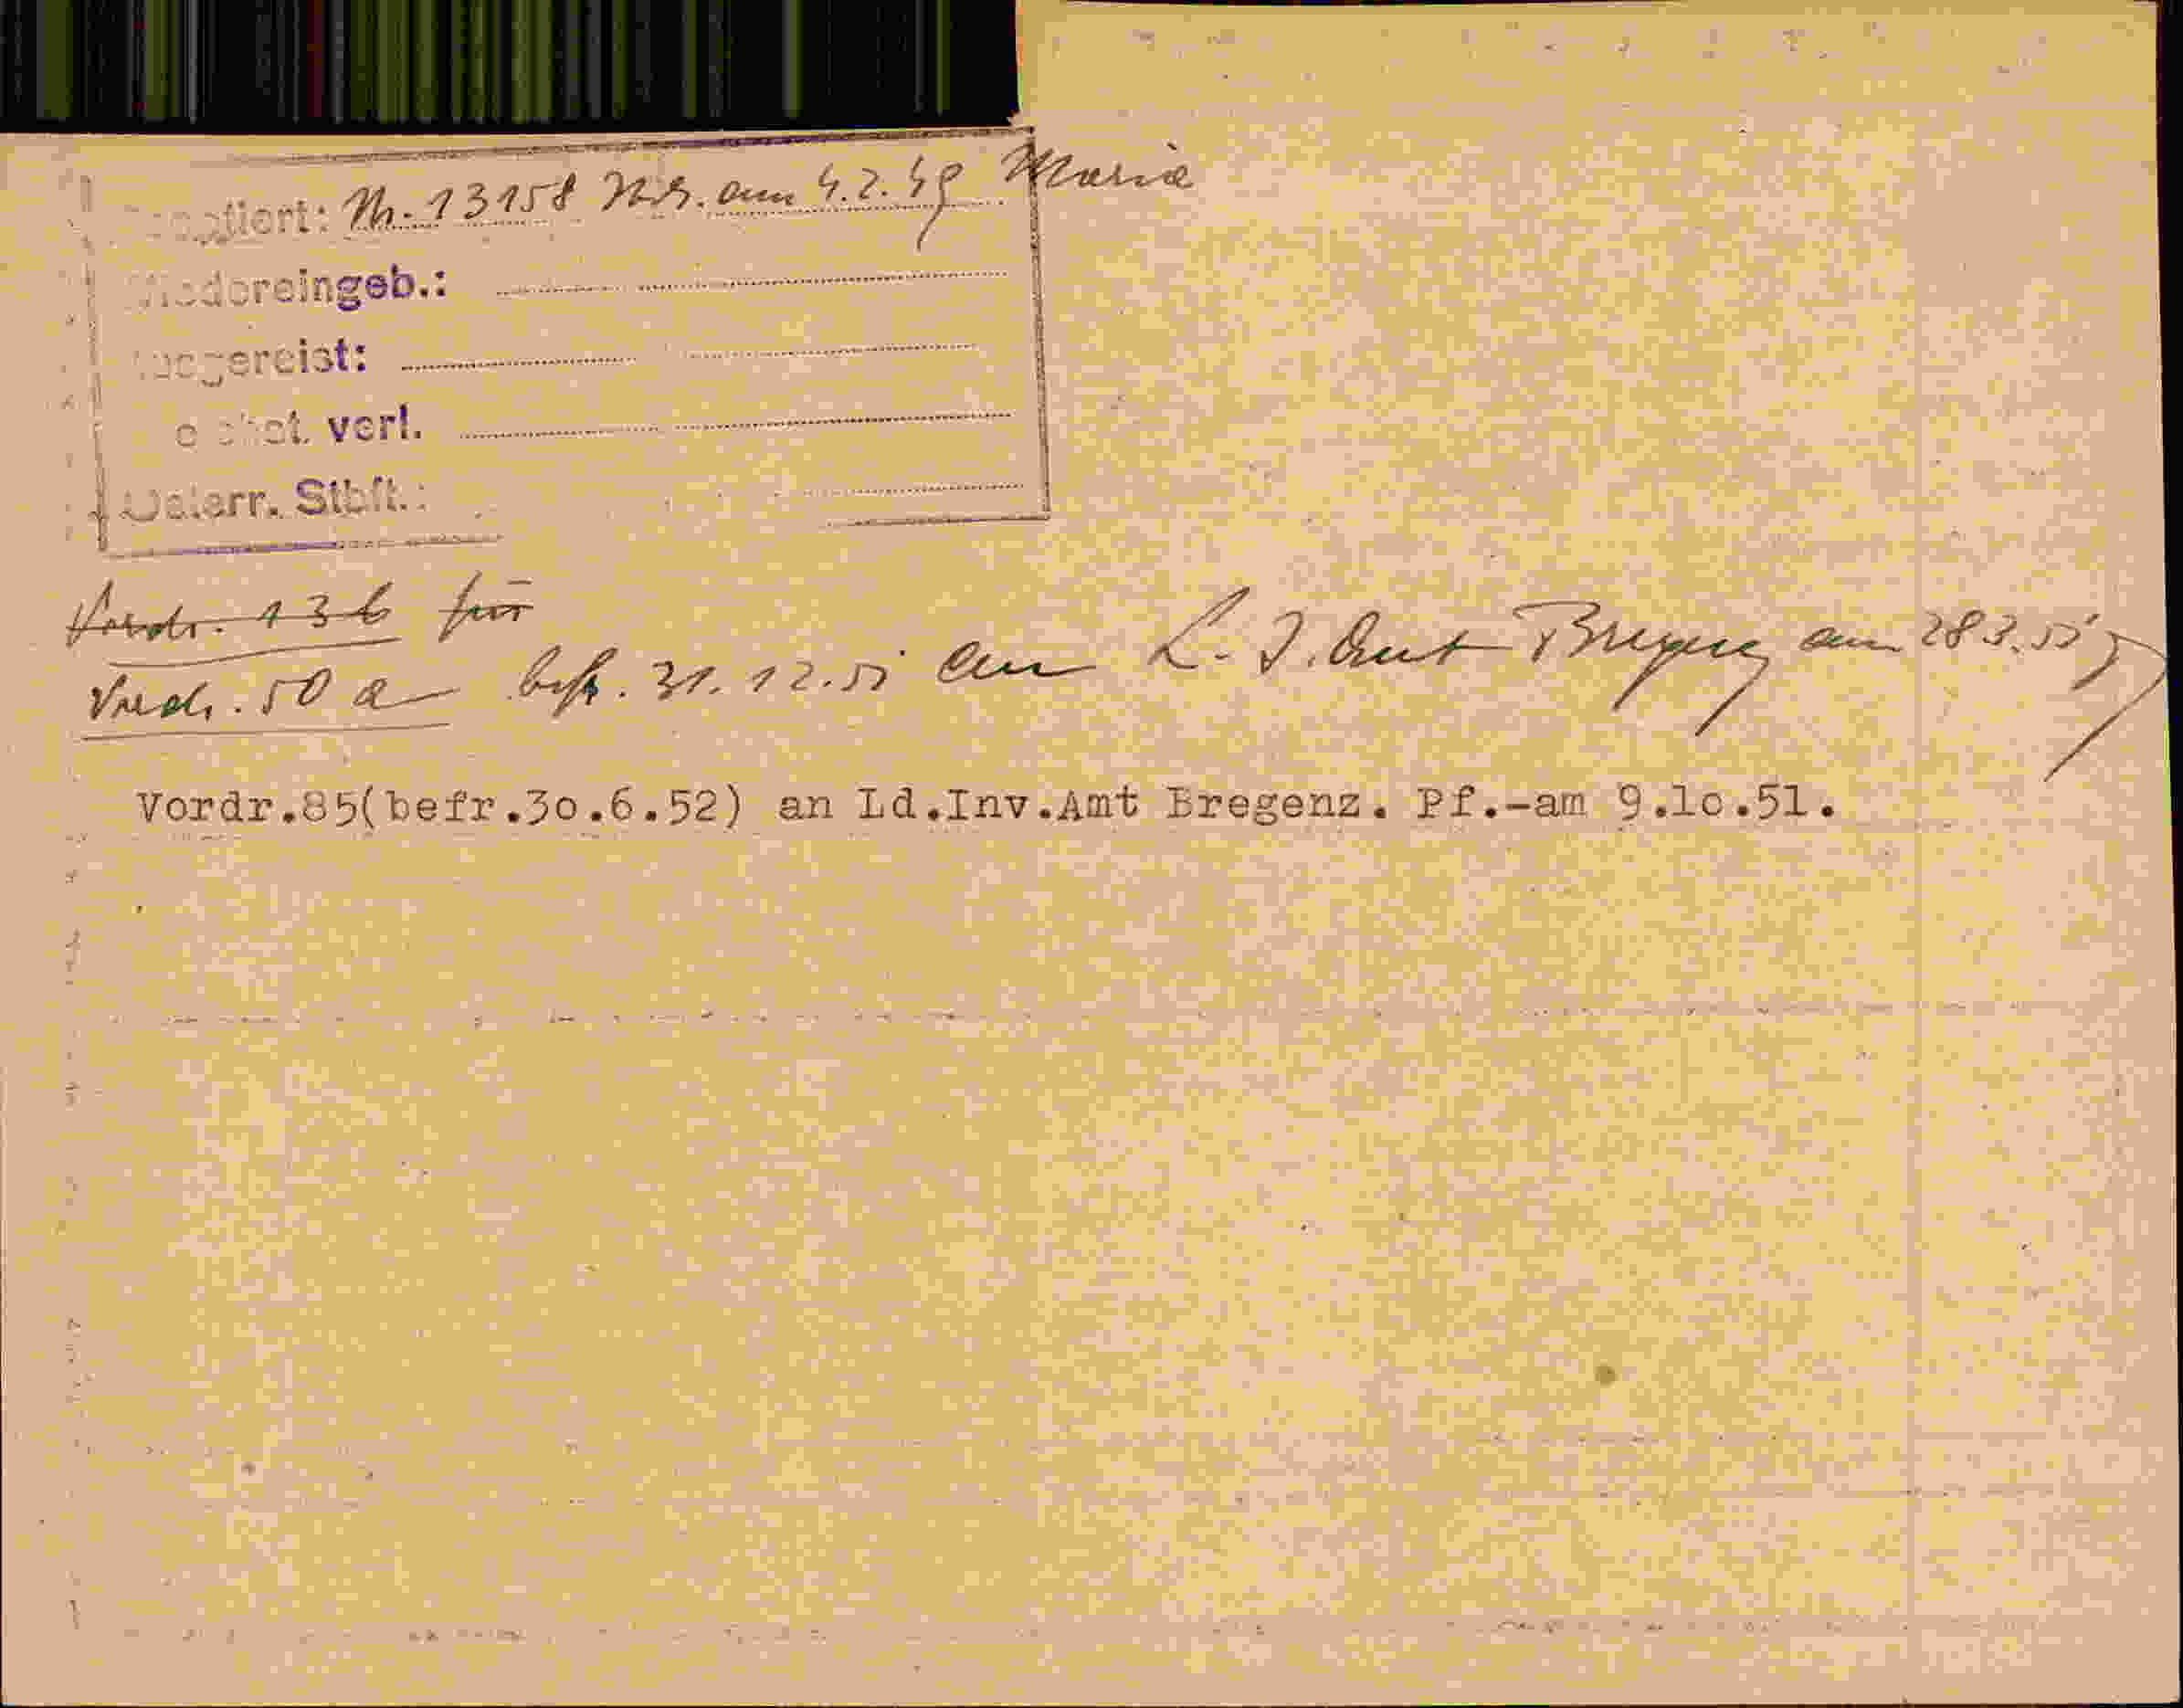 Optiert: Nr. 13158 am 4.2.49 Maria
Wiedereingeb.:
Ausgereist:
verl.
Oesterr. Stbft.:
Vordr. 13 b für
Vordr. 50 a befr. 31.12.51 an L. I. Amt Bregenz am 28.3.51
Vordr.85(befr.3o.6.52) an Ld.Inv.Amt Bregenz. Pf.-am 9.1o.51.